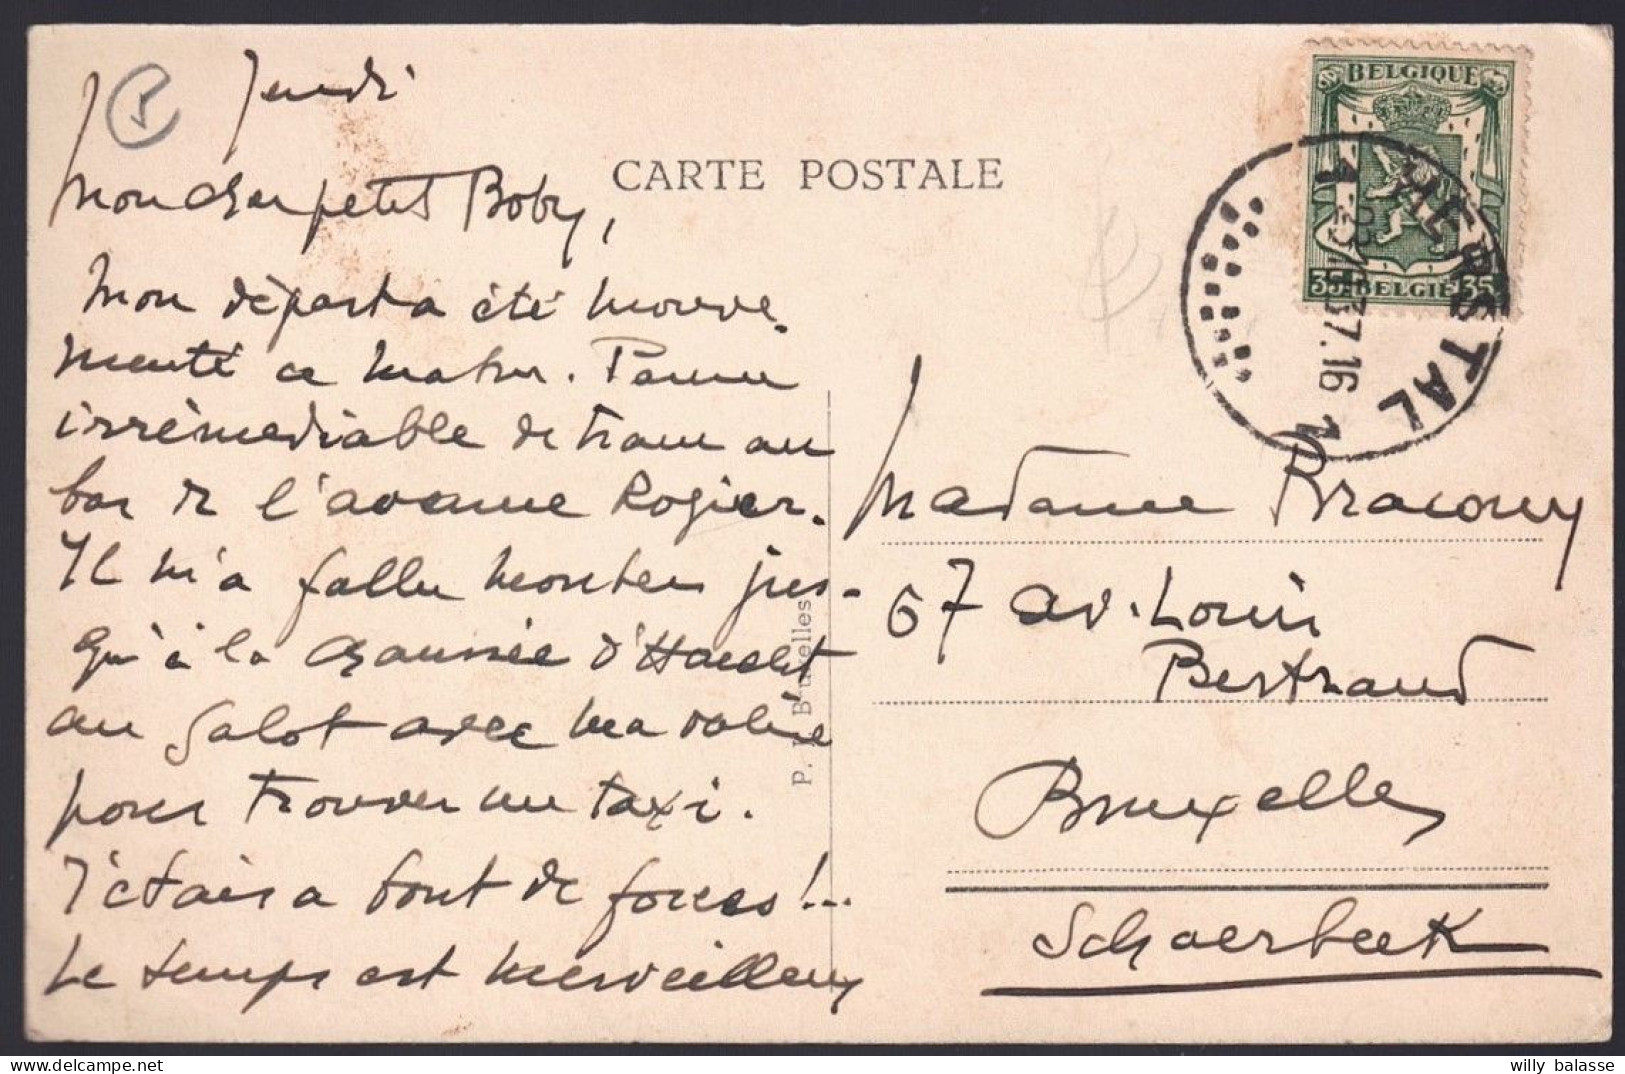 Jeudi
Mon cher petit Boby,
Mon départ a été mouve-
menté ce matin. Panne
irrémédiable de tram au
bas de l'avenue Rogier.
Il m'a fallu monter jus-
qu'à la chaussée d'Haecht
au galot avec ma valise
pour trouver un taxi.
J'étais a bout de forces!...
Le temps est merveilleux
CARTE POSTALE
P. I. B. Bruxelles
BELGIQUE
35 BELGIË 35
HERSTAL
1
37.16
1
Madame Braconny
67 av. Louis
Bertrand
Bruxelles
Schaerbeek
willy balasse